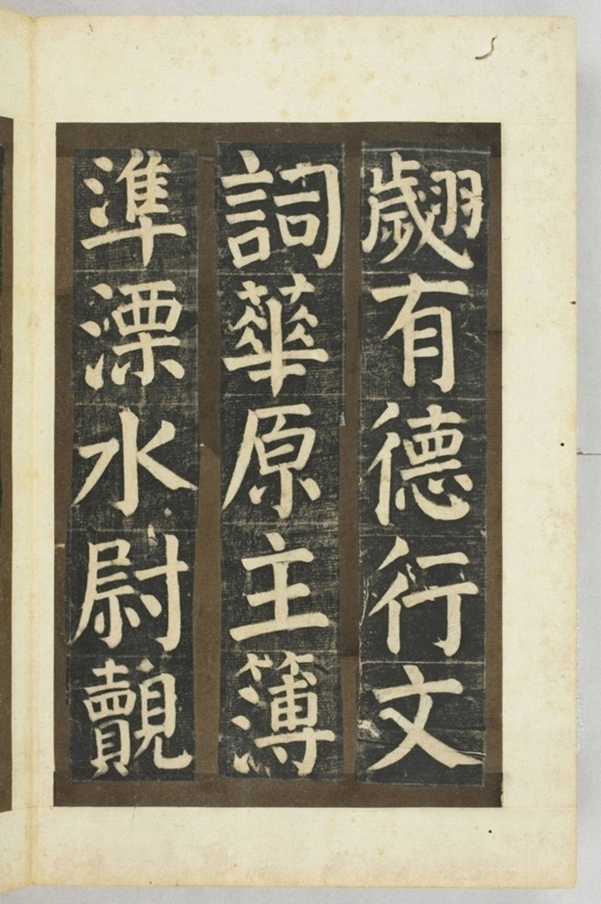 翽有德行文
詞華原主簿
準溧水尉覿